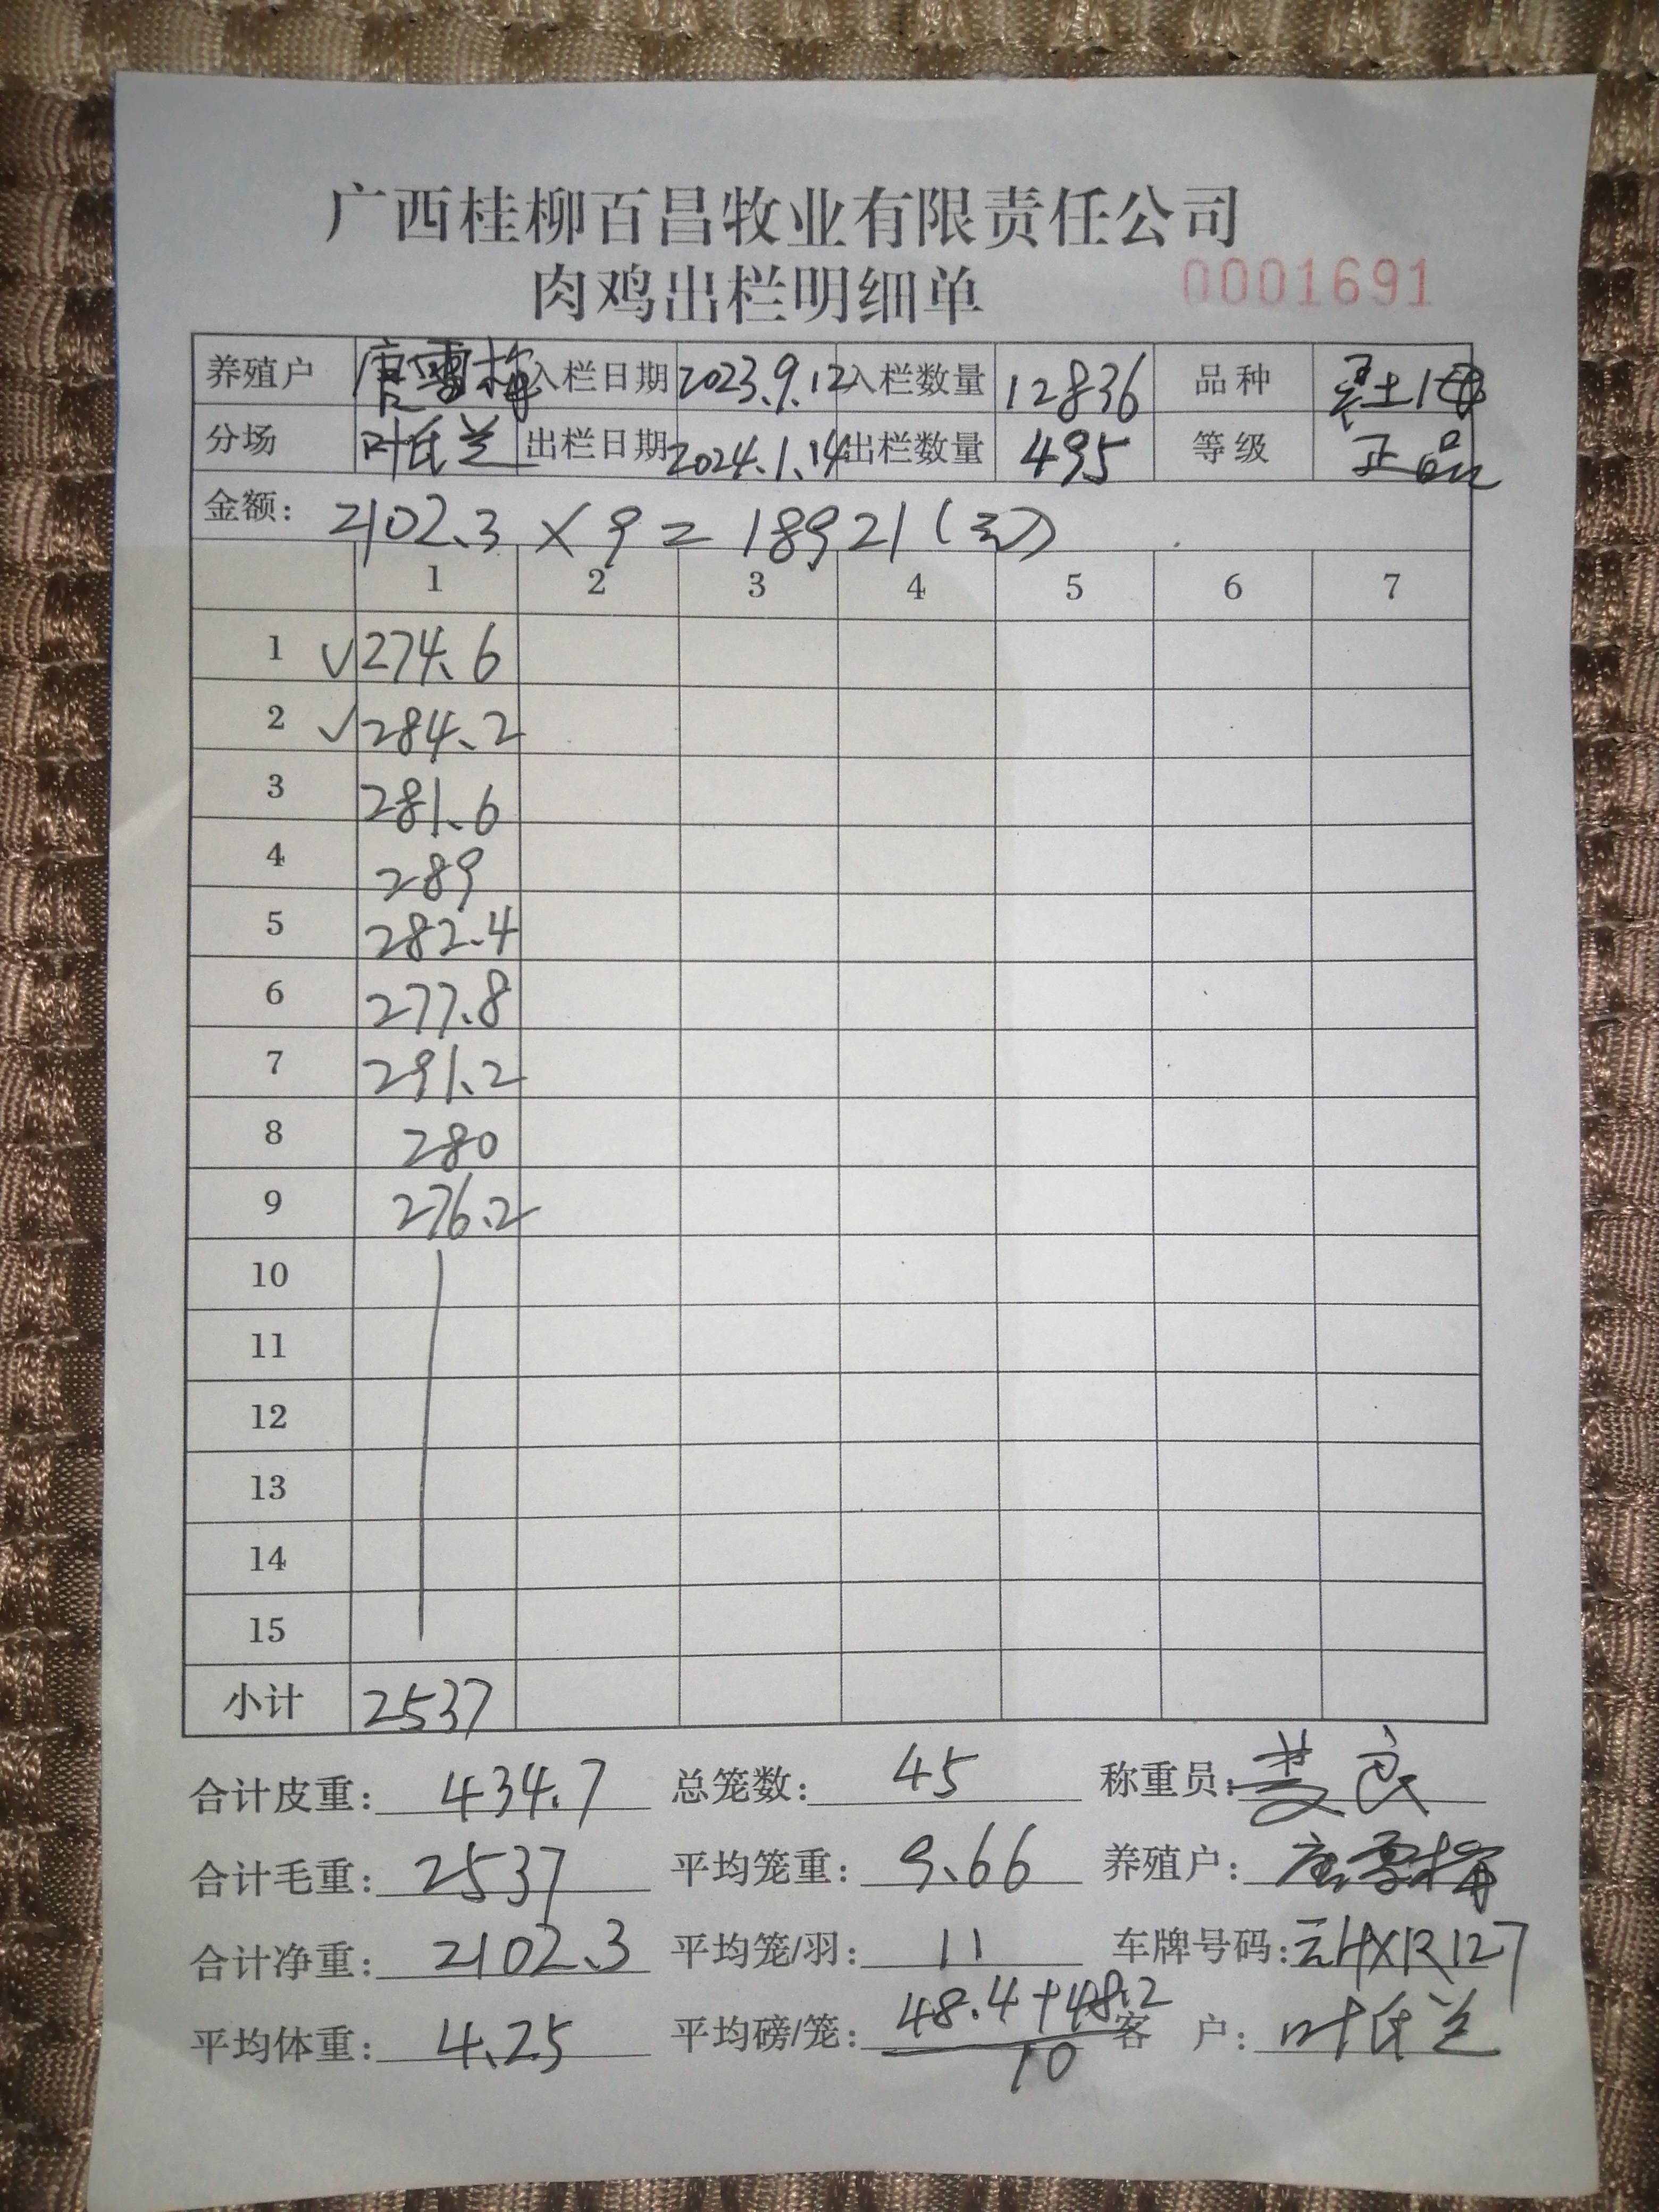 广西桂柳百昌牧业有限责任公司
肉鸡出栏明细单 0001691
养殖户 唐雪梅 入栏日期 2023.9.12 入栏数量 12836 品种 土1母
分场 叶氏兰 出栏日期 2024.1.14 出栏数量 495 等级 正品
金额: 2102.3×9=18921(元)
1 2 3 4 5 6 7
1 √274.6
2 √284.2
3 281.6
4 289
5 282.4
6 277.8
7 291.2
8 280
9 276.2
10
11
12
13
14
15
小计 2537
合计皮重: 434.7 总笼数: 45 称重员:
合计毛重: 2537 平均笼重: 9.66 养殖户: 唐雪梅
合计净重: 2102.3 平均笼/羽: 11 车牌号码: 云HXR127
平均体重: 4.25 平均磅/笼: 48.4+48.2 客 户: 叶氏兰
10